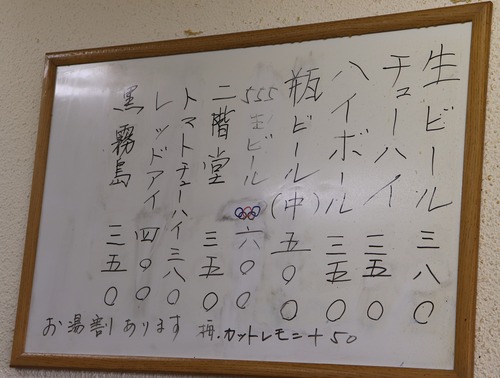 生ビール 三八〇
チューハイ 三五〇
ハイボール 三五〇
瓶ビール(中) 五〇〇
555生ビール 六〇〇
二階堂 三五〇
トマトチューハイ 三八〇
レッドアイ 四〇〇
黒霧島 三五〇
お湯割あります 梅.カットレモン+50